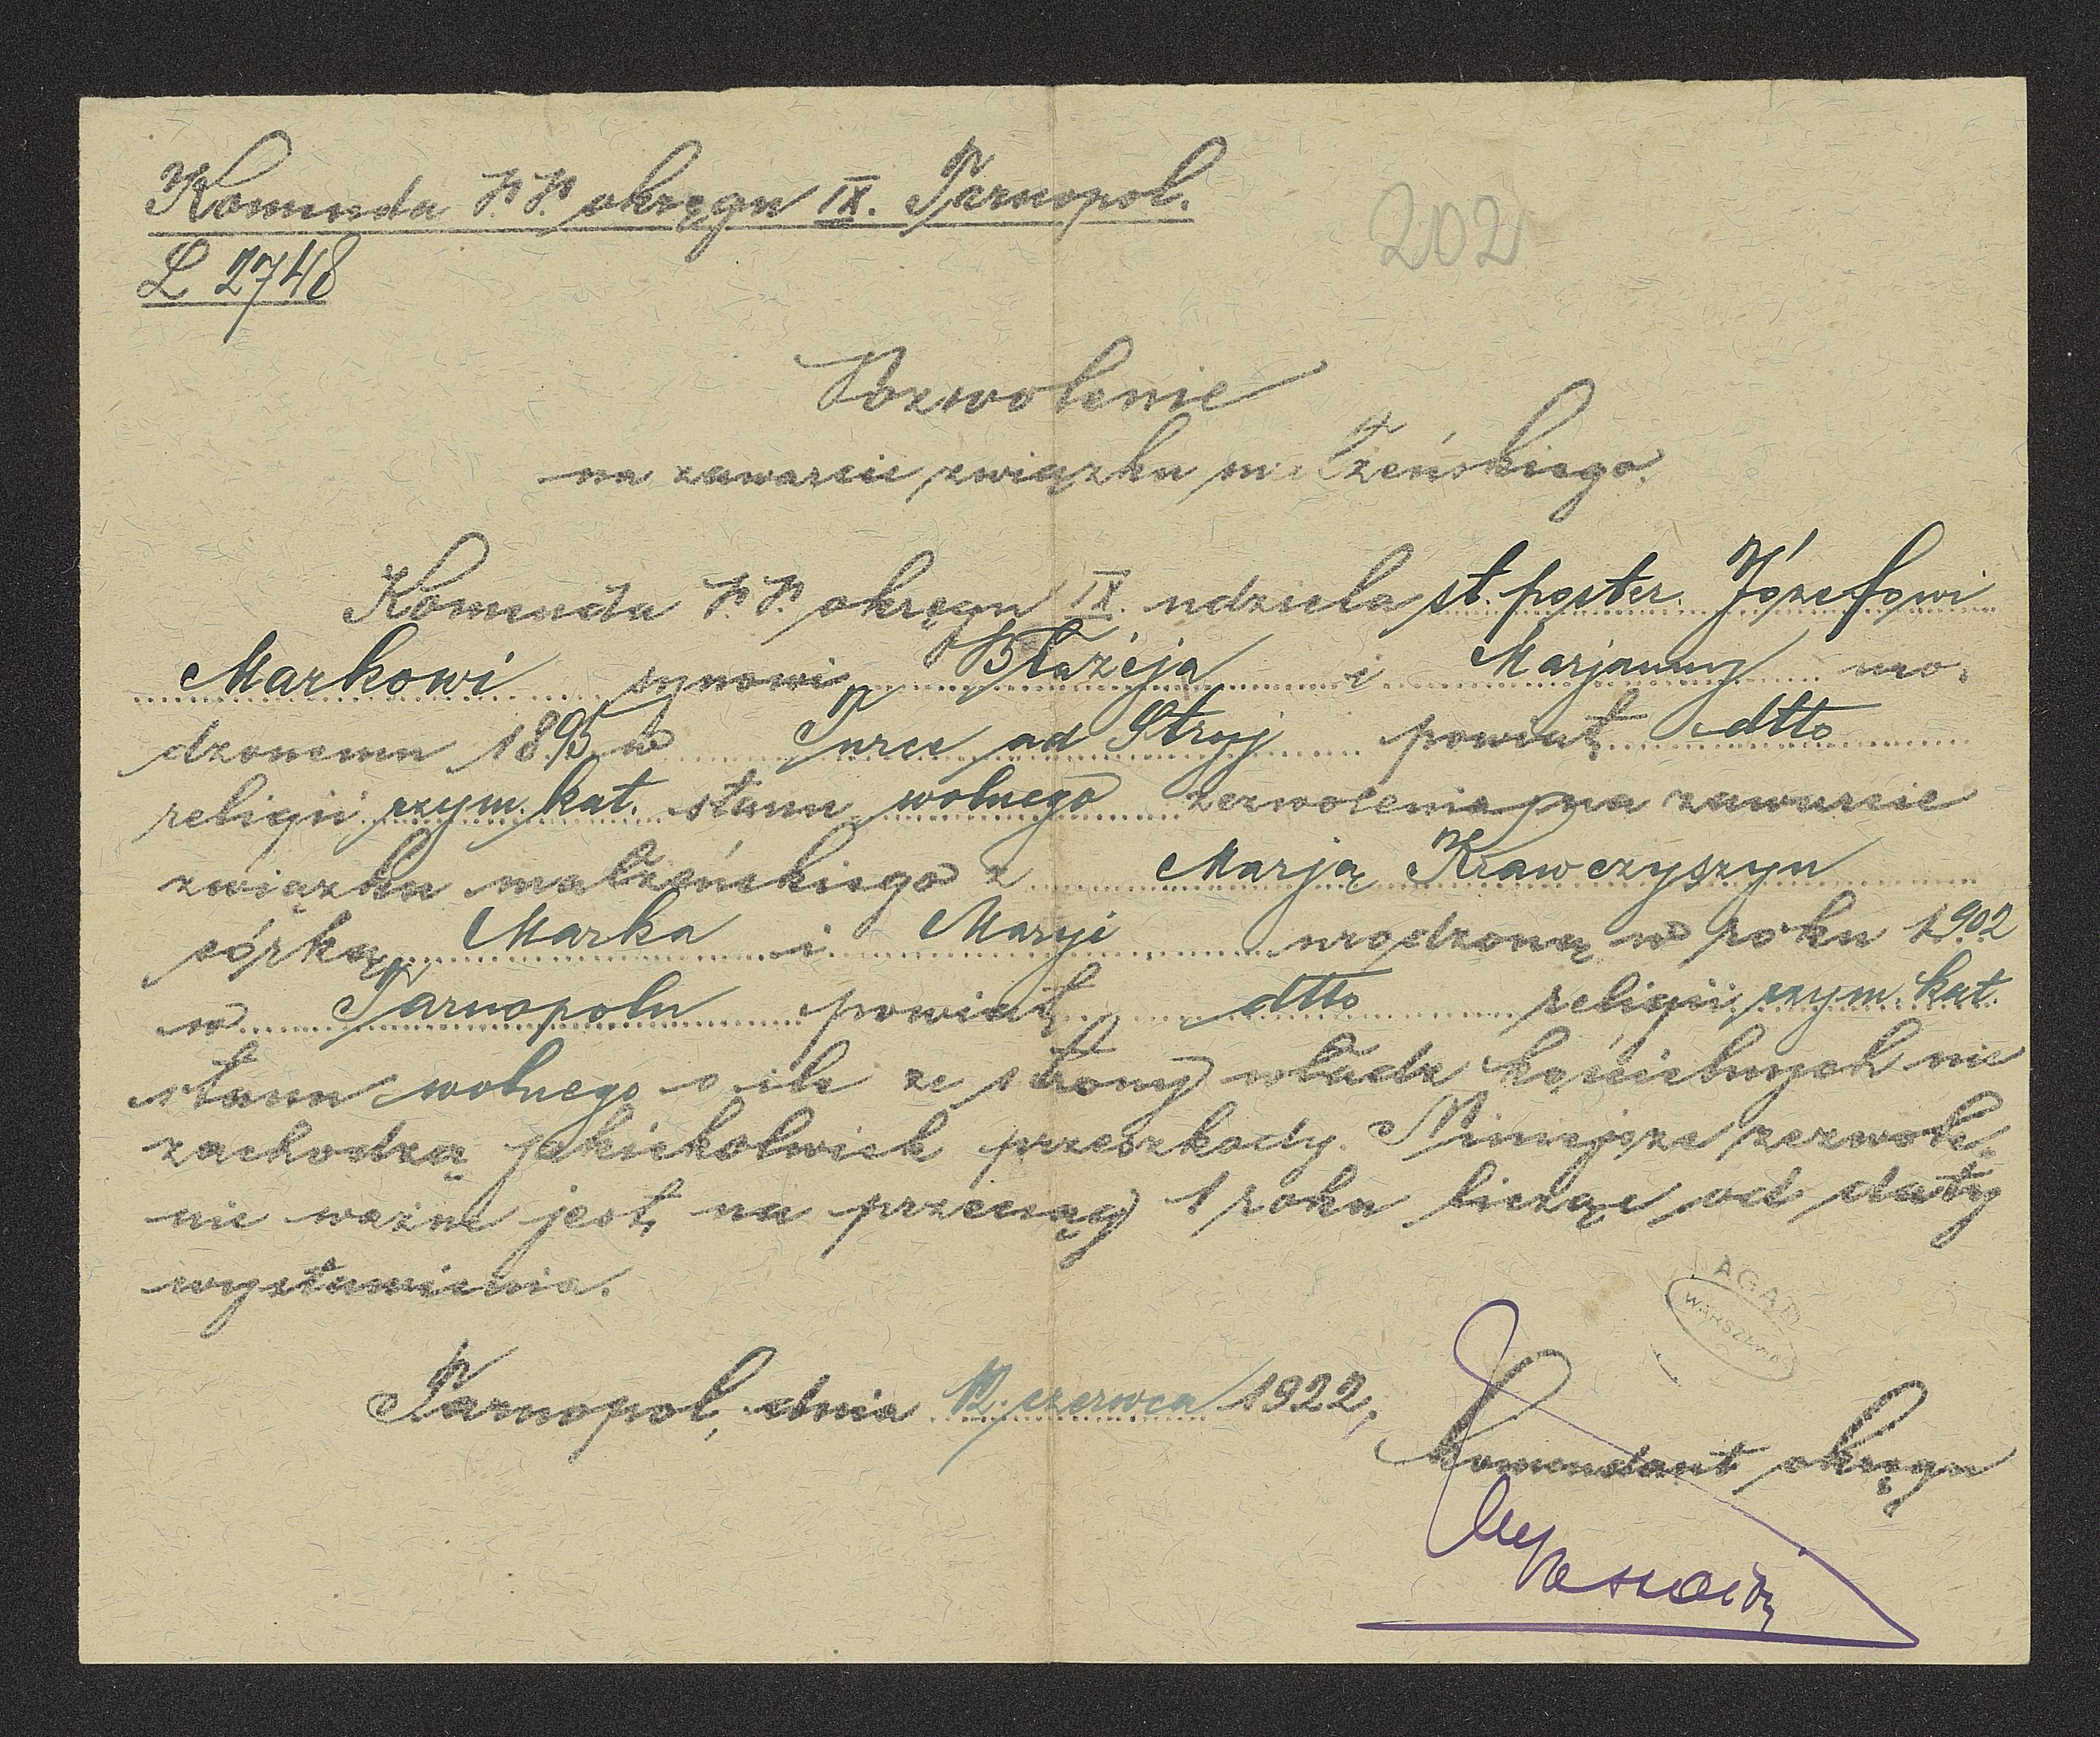 Komenda P.P. okręgu IX. Tarnopol.
202
L 2748
Pozwolenie
na zawarcie związku małżeńskiego.
Komenda P.P. okręgu IX. udziela st. poster. Józefowi
Markowi synowi Błażeja i Marjanny uro-
dzonemu 1895 w Turce ad Stryj powiat dtto
religii rzym. kat. stanu wolnego zezwolenia na zawarcie
związku małżeńskiego z Marją Krawczyszyn
córką Marka i Maryi urodzoną w roku 1902
w Tarnopolu powiat dtto religii rzym. kat.
stanu wolnego o ile ze strony władz kościelnych nie
zachodzą jakiekolwiek przeszkody. Niniejsze zezwole-
nie ważne jest na przeciąg 1 roku licząc od daty
wystawienia.
AGAD
WARSZAWA
Tarnopol, dnia 12 czerwca 1922.
Komendant okręgu